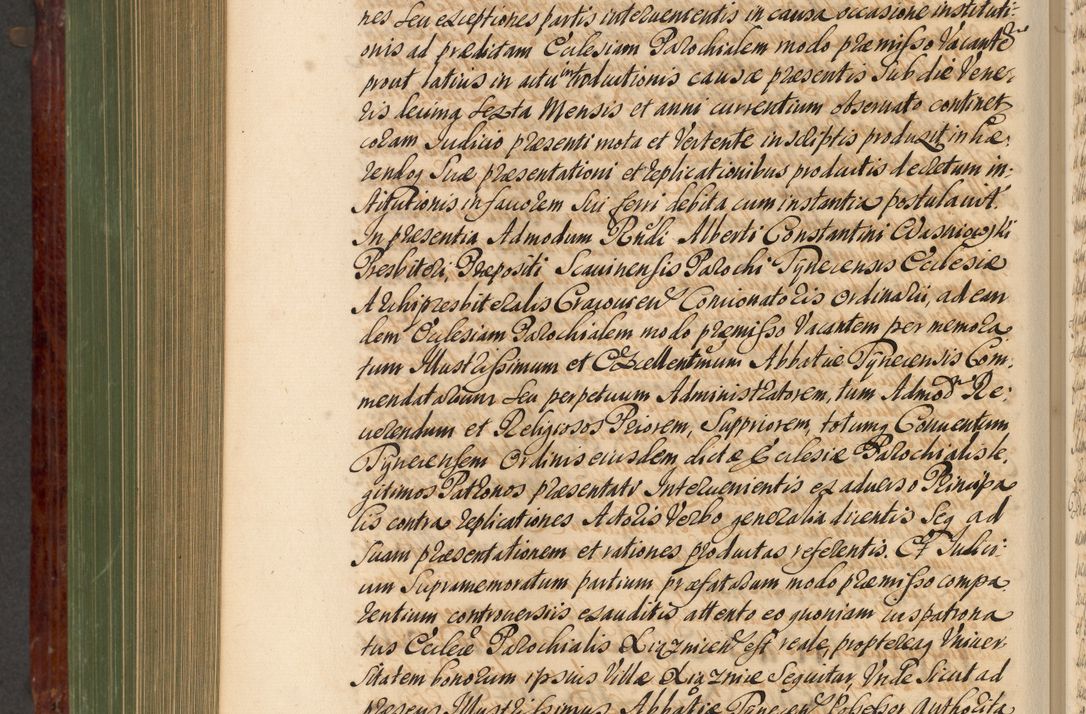 nes seu exceptiones partis intervenientis in causa occasione instituti:
onis ad prædictam Ecclesiam Parochialem modo præmisso Vacante
prout latius in actu introductionis causæ præsentis sub die Vene:
ris decima sexta Mensis et anni currentium observato continet
coram Iudicio præsenti mota et Vertente in scriptis produxit inhæ:
rendoq suæ præsentationi et replicationibus productis decretum in:
stitutionis in favorem sui ferri debita cum instantia postulavit.
In præsentia Admodum Rndi Alberti Constantini Wasniowski
Presbiteri, Præpositi Scavinensis Parochi Tynecensis Ecclesiæ
Archipresbiteralis Cracovien Concionatoris ordinarii, ad ean
dem Ecclesiam Parochialem modo præmisso Vacantem per memora
tum Illustrissimum et Excellentimum Abbatiæ Tynecensis Com:
mendatarium seu perpetuum Administratorem, tum Admod Re:
verendum et Religiosos Priorem, Suppriorem, totumq Conventum
Tynecensem Ordinis eiusdem dictæ Ecclesiæ Parochialis le,
gitimos Patronos præsentati Intervenientis ex adverso Principa
lis contra replicationes Actoris Verbo generalia dicentis Seq ad
suam præsentationem et rationes productas referentis. Et Iudici:
um supramemoratum partium præfatarum modo præmisso compa
rentium controversiis exauditis attento eo quoniam ius patrona
tus Ecclæ Parochialis Liszniecn est reale, proptereaq Univer
sitatem bonorum ipsius Villæ Lisznie sequitur, Unde sicut ad
præsens Illustrissimus Abbatiæ Tynecen Professor authorita